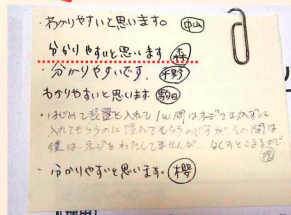 ・わかりやすいと思います。 中山
分かりやすいと思います 森
・分かりやすいです. 平野
わかりやすいと思います 駒田
・はじめて装置を入れて1W間はネジをまわさずに
入れてもらうのに慣れてもらうのですが、その間は
僕は、ネジをわたしてませんが なくすとこまるので
・分かりやすいと思います。 櫻